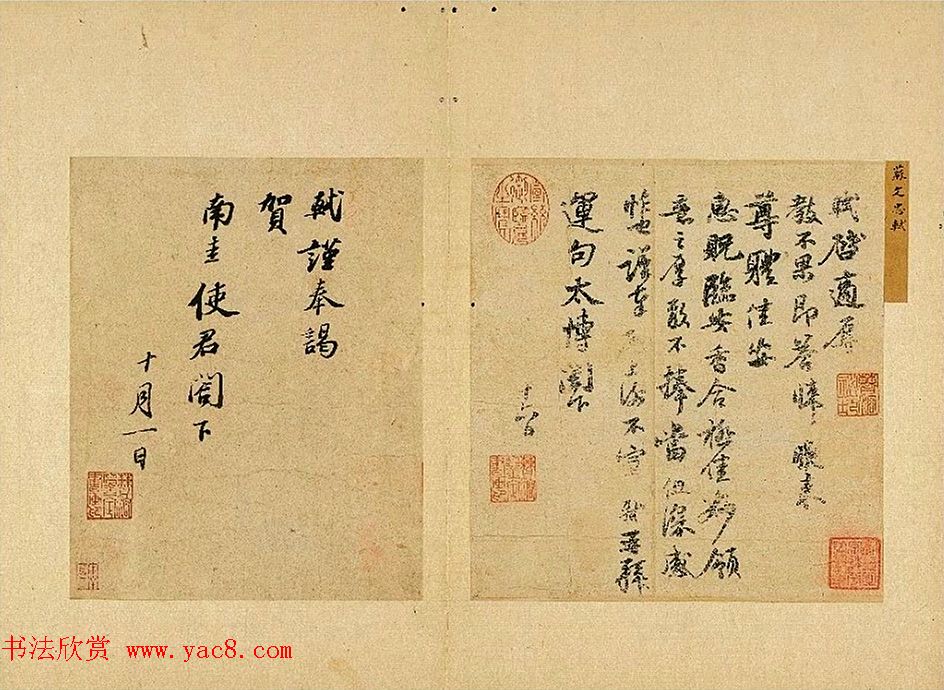 蘇文忠軾
軾啓適辱
教不果即答悚悚晚來
尊體佳安
惠貺臨安香合極佳妙領
意之厚敢不捧當但深感
怍也謹奉啓上謝不宣軾再拜
運句太博閤下
十六日
軾謹奉謁
賀
南圭使君閤下
十月一日
书法欣赏 www.yac8.com